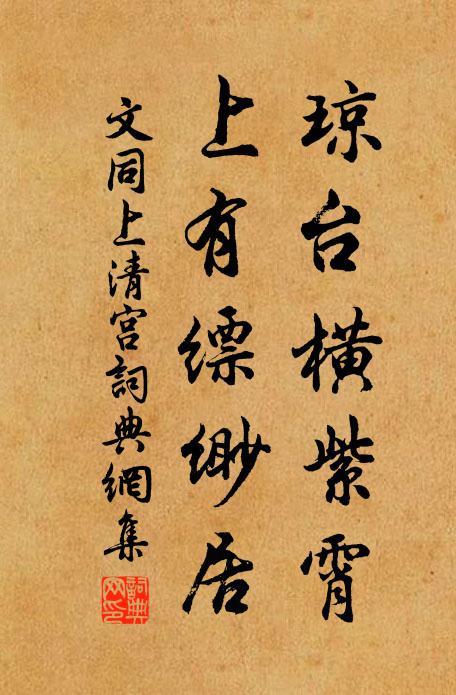 琼台横紫霄
上有缥缈居
文同上清宫詞典網集
詞典网印